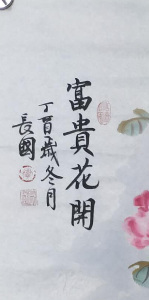 富貴花開
丁酉歲冬月
長國